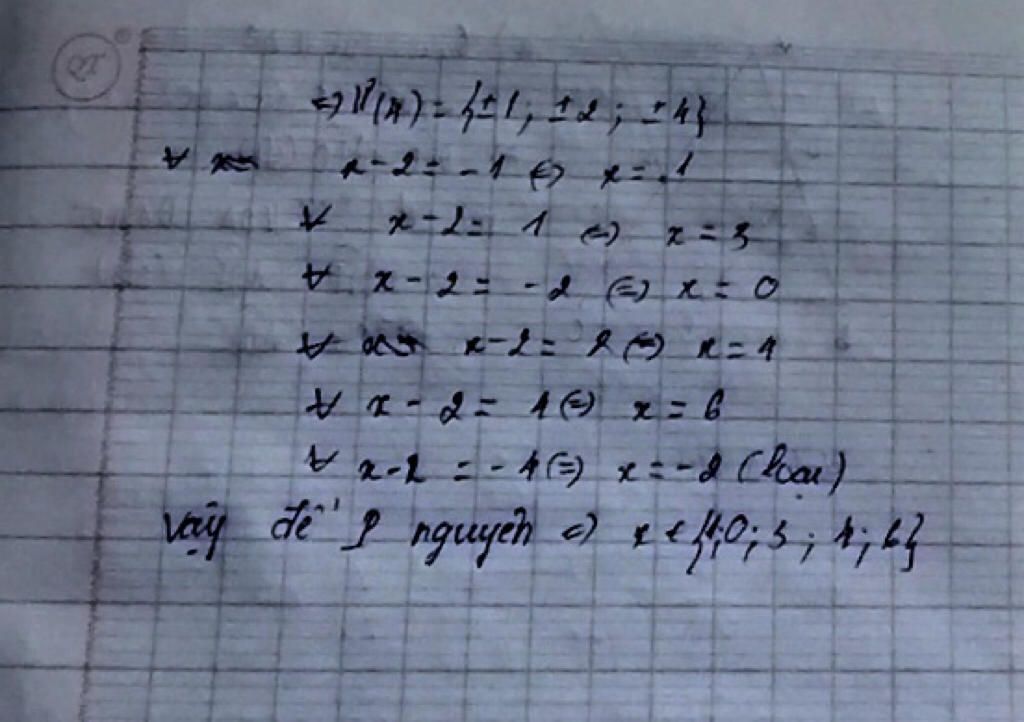 QT
=> Ư(4) = {±1; ±2; ±4}
∀ x - 2 = -1 <=> x = 1
∀ x - 2 = 1 <=> x = 3
∀ x - 2 = -2 <=> x = 0
∀ x - 2 = 2 <=> x = 4
∀ x - 2 = 4 <=> x = 6
∀ x - 2 = -4 <=> x = -2 (loại)
Vậy để P nguyên <=> x ∈ {1;0;3;4;6}